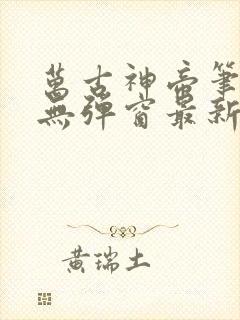 萬古神帝筆
無彈窗最新
黃瑞土